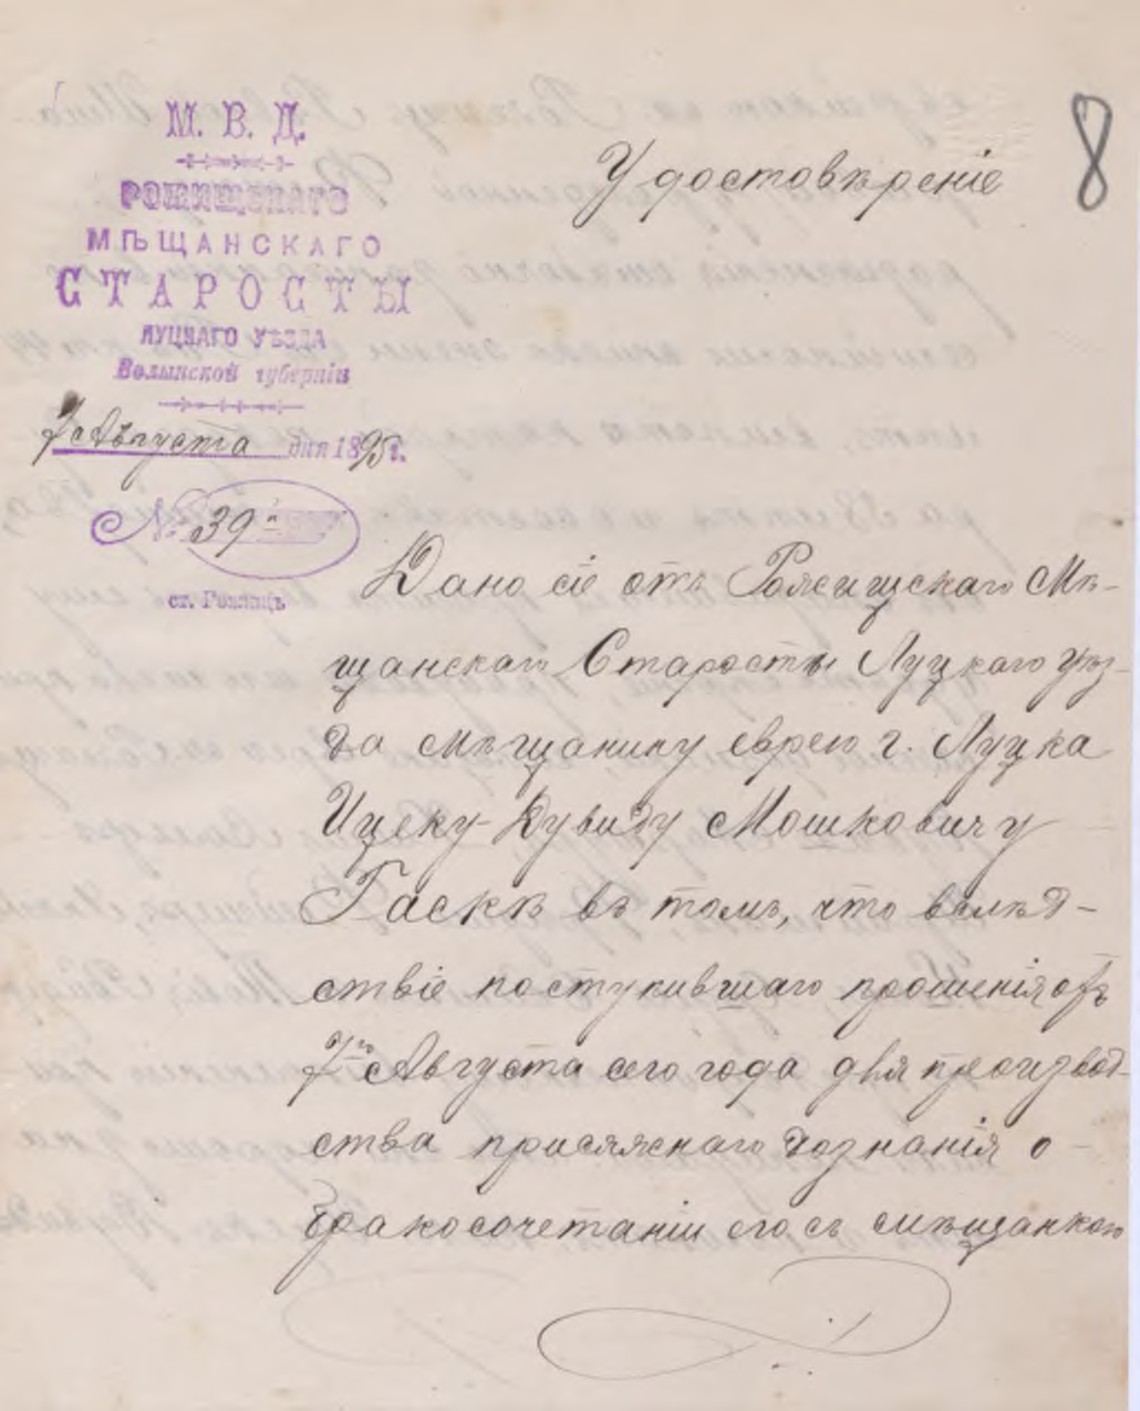 М. В. Д.
РОЖИЩСКАГО
МѢЩАНСКАГО
СТАРОСТЫ
ЛУЦКАГО УѢЗДА
Волынской губерніи
7 Августа дня 1895 г.
№ 39
ст. Рожищъ
8
Удостовѣреніе
Дано сіе отъ Рожищскаго Мѣ-
щанскаго Старосты Луцкаго Уѣз-
да мѣщанину еврею г. Луцка
Ицеку-Дувиду Мошковичу
Гаскѣ въ томъ, что вслѣд-
ствіе поступившаго прошенія отъ
7го Августа сего года для производ-
ства присяжнаго дознанія о
бракосочетаніи его съ мѣщанкою